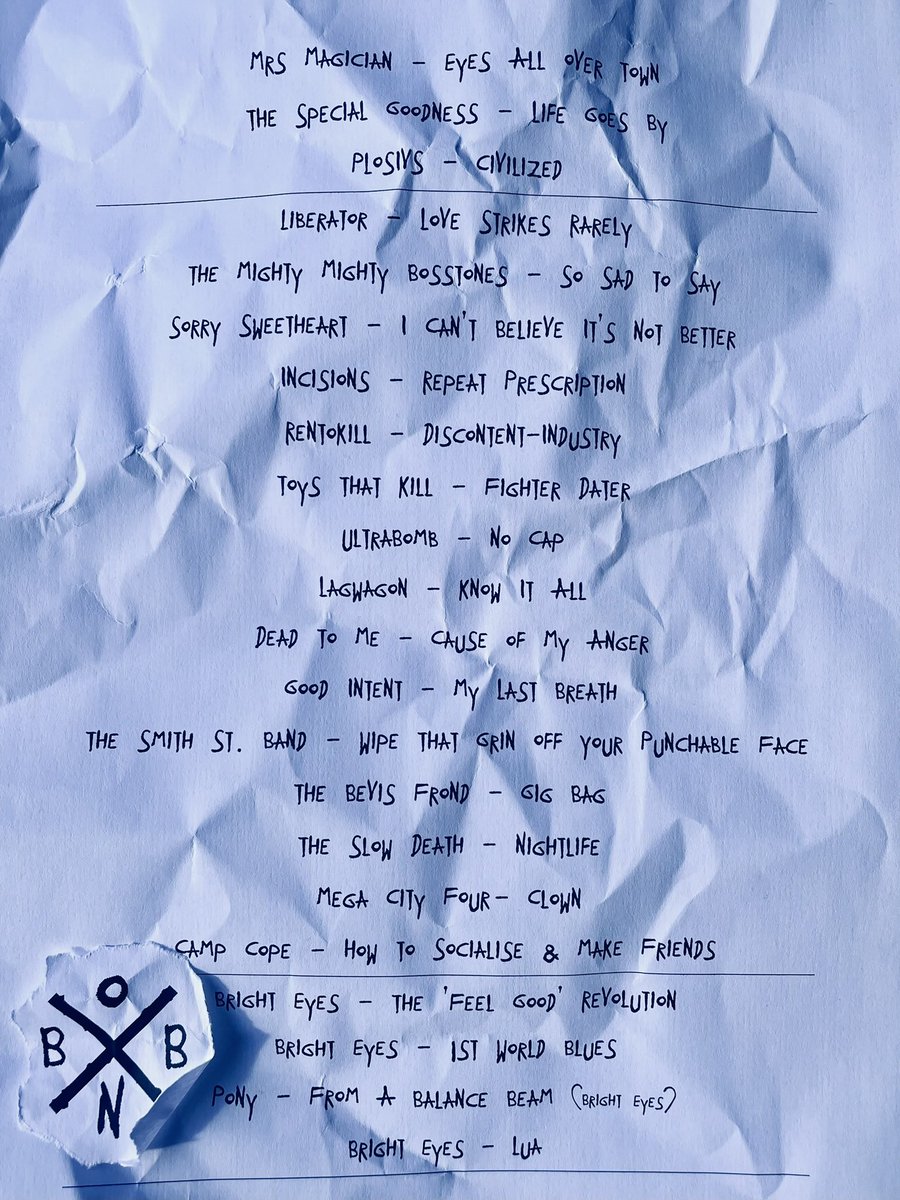 MRS MAGICIAN – EYES ALL OVER TOWN
THE SPECIAL GOODNESS – LIFE GOES BY
PLOSIVS – CIVILIZED
LIBERATOR – LOVE STRIKES RARELY
THE MIGHTY MIGHTY BOSSTONES – SO SAD TO SAY
SORRY SWEETHEART – I CAN'T BELIEVE IT'S NOT BETTER
INCISIONS – REPEAT PRESCRIPTION
RENTOKILL – DISCONTENT-INDUSTRY
TOYS THAT KILL – FIGHTER DATER
ULTRABOMB – NO CAP
LAGWAGON – KNOW IT ALL
DEAD TO ME – CAUSE OF MY ANGER
GOOD INTENT – MY LAST BREATH
THE SMITH ST. BAND – WIPE THAT GRIN OFF YOUR PUNCHABLE FACE
THE BEVIS FROND – GIG BAG
THE SLOW DEATH – NIGHTLIFE
MEGA CITY FOUR– CLOWN
CAMP COPE – HOW TO SOCIALISE & MAKE FRIENDS
BRIGHT EYES – THE 'FEEL GOOD' REVOLUTION
BRIGHT EYES – 1ST WORLD BLUES
PONY – FROM A BALANCE BEAM (BRIGHT EYES)
BRIGHT EYES – LUA
O
B B
N